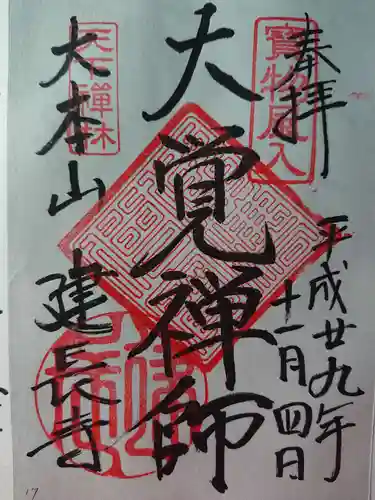 奉拝
寳物風入
平成廿九年
十一月四日
大覚禅師
天下禅林
大本山 建長寺
17